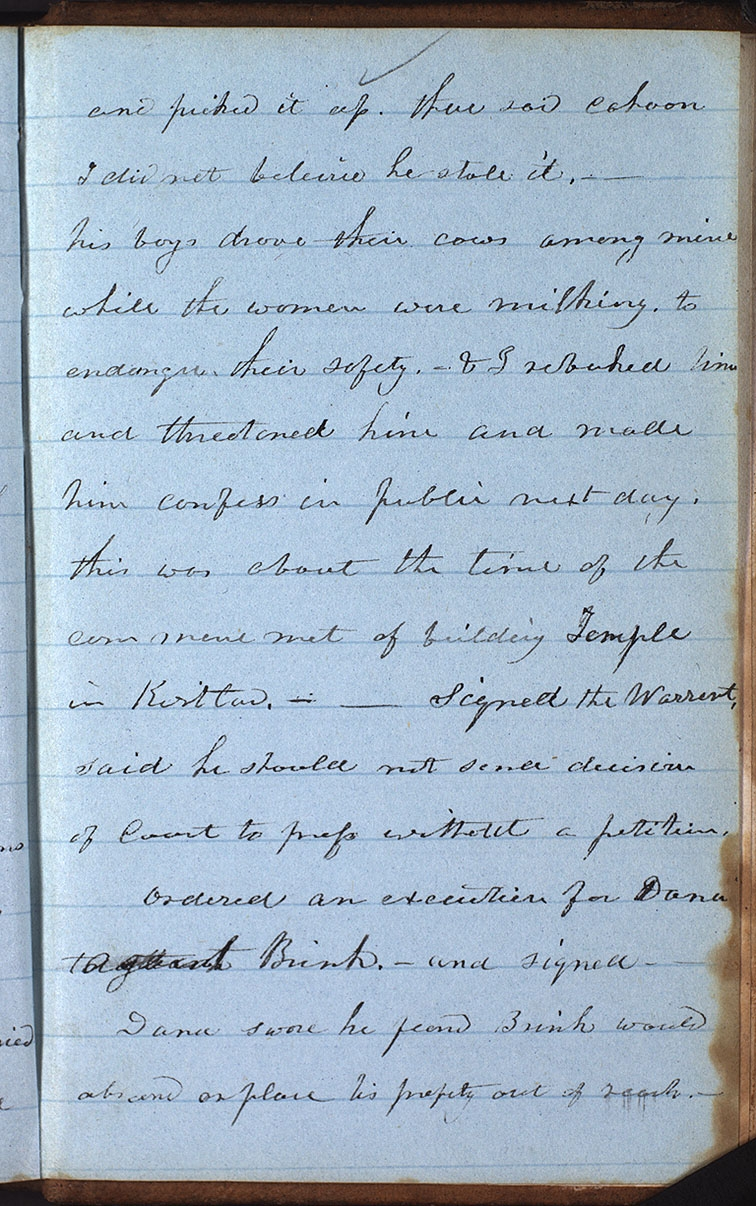 and picked it up. thue said Cahoon
I did not beleive he stole it. —
his boys drove their cows among mine
while the women were milking. to
endanger their safety. - & I rebuked him
and threatened him and made
him confess in public next day.
this was about the time of the
commencemet of building Temple
in Kirtland. — — Signed the Warrent,
said he should not send decision
of Court to press without a petition.
ordered an execution for Dana
Brink. - and signed —
Dana swore he feard Brink would
abscond or place his property out of reach. —